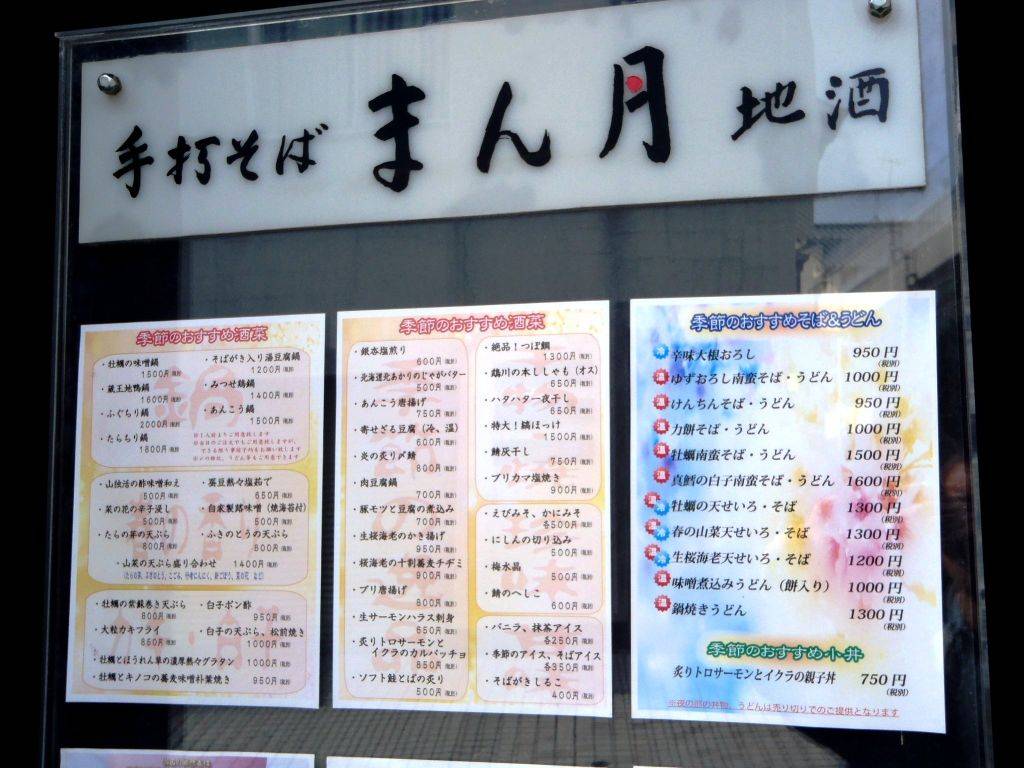 手打そば まん月 地酒
季節のおすすめ酒菜
・牡蠣の味噌鍋
1500円(税別)
・蔵王地鴨鍋
1600円(税別)
・ふぐちり鍋
2000円(税別)
・たらちり鍋
1800円(税別)
・そばがき入り湯豆腐鍋
1200円(税別)
・みつせ鶏鍋
1400円(税別)
・あんこう鍋
1500円(税別)
・山独活の酢味噌和え
500円(税別)
・菜の花の辛子浸し
500円(税別)
・たらの芽の天ぷら
800円(税別)
500円(税別)
・ふきのとうの天ぷら
800円(税別)
・山菜の天ぷら盛り合わせ 1400円(税別)
・牡蠣の紫蘇巻き天ぷら
800円(税別)
・大粒カキフライ
850円(税別)
・白子ポン酢
950円(税別)
・白子の天ぷら、松前焼き
1000円(税別)
・牡蠣とほうれん草の濃厚熱々グラタン
1000円(税別)
・牡蠣とキノコの蕎麦味噌朴葉焼き 950円(税別)
季節のおすすめ酒菜
・銀杏塩煎り
600円(税別)
・北海道北あかりのじゃがバター
500円(税別)
・あんこう唐揚げ
750円(税別)
・寄せざる豆腐(冷、温)
600円(税別)
・炎の炙り〆鯖
800円(税別)
・肉豆腐鍋
700円(税別)
・豚モツと豆腐の煮込み
700円(税別)
・生桜海老のかき揚げ
950円(税別)
・桜海老の十割蕎麦チヂミ
900円(税別)
・ブリ唐揚げ
800円(税別)
・生サーモンハラス刺身
650円(税別)
・炙りトロサーモンと
イクラのカルパッチョ
850円(税別)
・ソフト鮭とばの炙り
500円(税別)
・絶品!つぼ鯛
1300円(税別)
・鵡川の本ししゃも(オス)
650円(税別)
・ハタハタ一夜干し
650円(税別)
・特大!縞ほっけ
1500円(税別)
・鯖灰干し
750円(税別)
・ブリカマ塩焼き
900円(税別)
・えびみそ、かにみそ
各500円(税別)
・にしんの切り込み
500円(税別)
・梅水晶
500円(税別)
・鯖のへしこ
600円(税別)
・バニラ、抹茶アイス
各250円(税別)
・季節のアイス、そばアイス
各350円(税別)
・そばがきしるこ
400円(税別)
季節のおすすめそば&うどん
冷 辛味大根おろし 950円(税別)
温 ゆずおろし南蛮そば・うどん 1000円(税別)
温 けんちんそば・うどん 950円(税別)
温 力餅そば・うどん 1000円(税別)
温 牡蠣南蛮そば・うどん 1500円(税別)
温 真鱈の白子南蛮そば・うどん 1600円(税別)
温冷 牡蠣の天せいろ・そば 1300円(税別)
温冷 春の山菜天せいろ・そば 1300円(税別)
温冷 生桜海老天せいろ・そば 1200円(税別)
温 味噌煮込みうどん(餅入り) 1000円(税別)
温 鍋焼きうどん 1300円(税別)
季節のおすすめ小丼
炙りトロサーモンとイクラの親子丼 750円(税別)
※夜の部の丼物、うどんは売り切りでのご提供となります